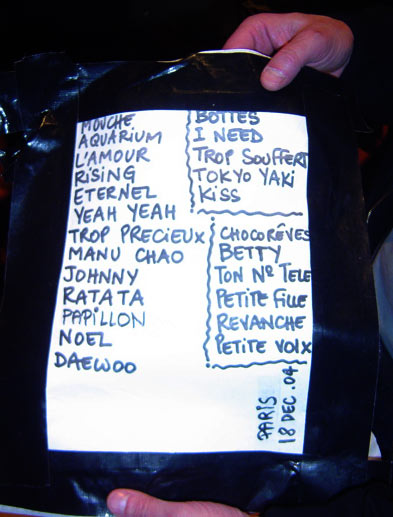 MOUCHE
AQUARIUM
L'AMOUR
RISING
ETERNEL
YEAH YEAH
TROP PRECIEUX
MANU CHAO
JOHNNY
RATATA
PAPILLON
NOEL
DAEWOO
BOTTES
I NEED
TROP SOUFFERT
TOKYO YAKI
KISS
CHOCORÊVES
BETTY
TON Nº TELE
PETITE FILLE
REVANCHE
PETITE VOIX
PARIS
18 DEC .04